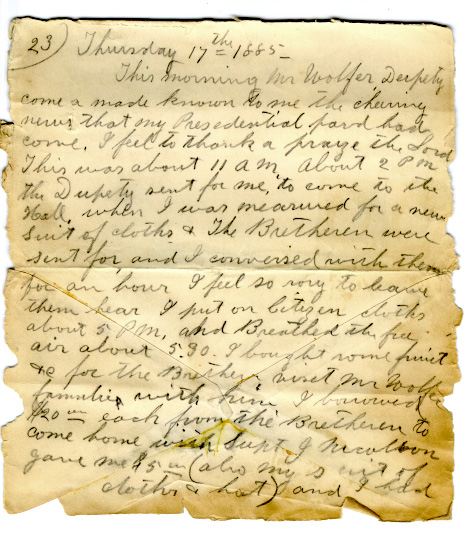 23) Thursday 17th 1885
This morning Mr Wolfer Depety
come a made known to me the cheering
news that my Presedential pard had
come. I feel to thank a praize the Lord
This was about 11 A M. About 2 P M
the Dupety sent for me, to come to the
Hall, when I was measured for a new
suit of cloths & The Bretheren were
sent for, and I conversed with them
for an hour I feel so sory to leave
them hear I put on Citizen cloths
about 5 P.M. and Breathed the free
air about 5.30. I bought some fruit
&c for the Brethern visit Mr Wolfer
families with him I borrowed
$20 each from the Bretheren to
come home with Supt J Nicolson
gave me $5 (also my suit of
cloths & hat) and I had